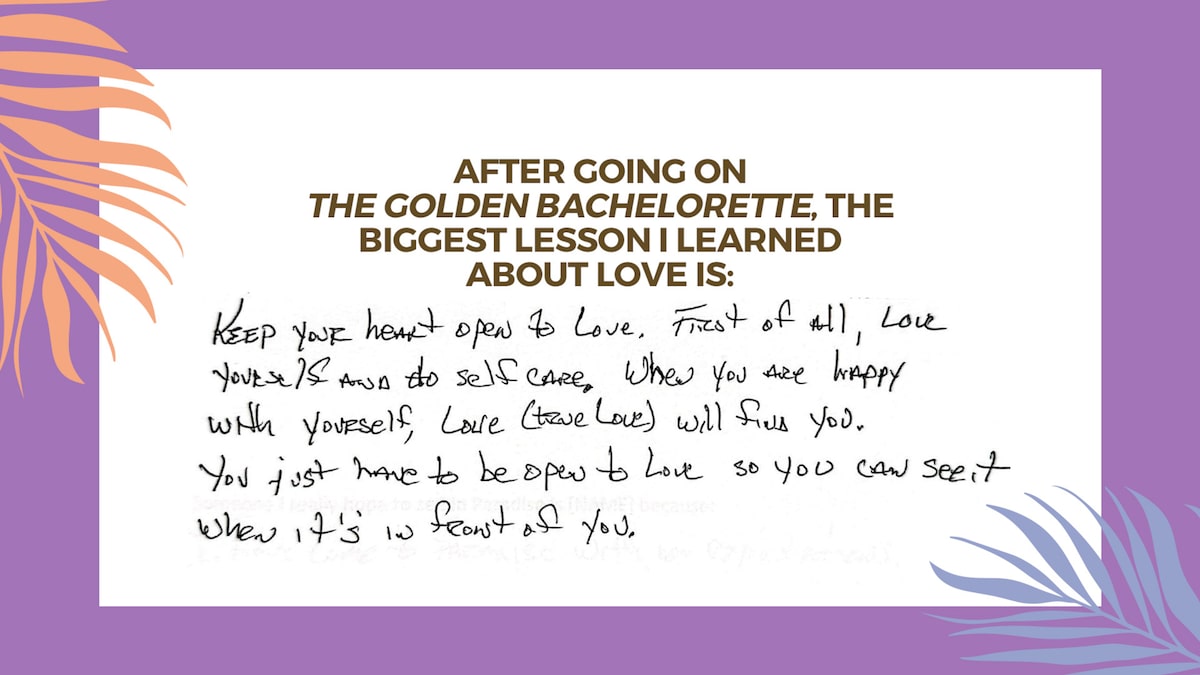 AFTER GOING ON
THE GOLDEN BACHELORETTE, THE
BIGGEST LESSON I LEARNED
ABOUT LOVE IS:
KEEP YOUR heart open to Love. First of all, Love
YOURSELF AND do self CARE. When you are happy
with yourself, Love (true Love) will find you.
You just have to be open to Love so you can see it
when it's in front of you.